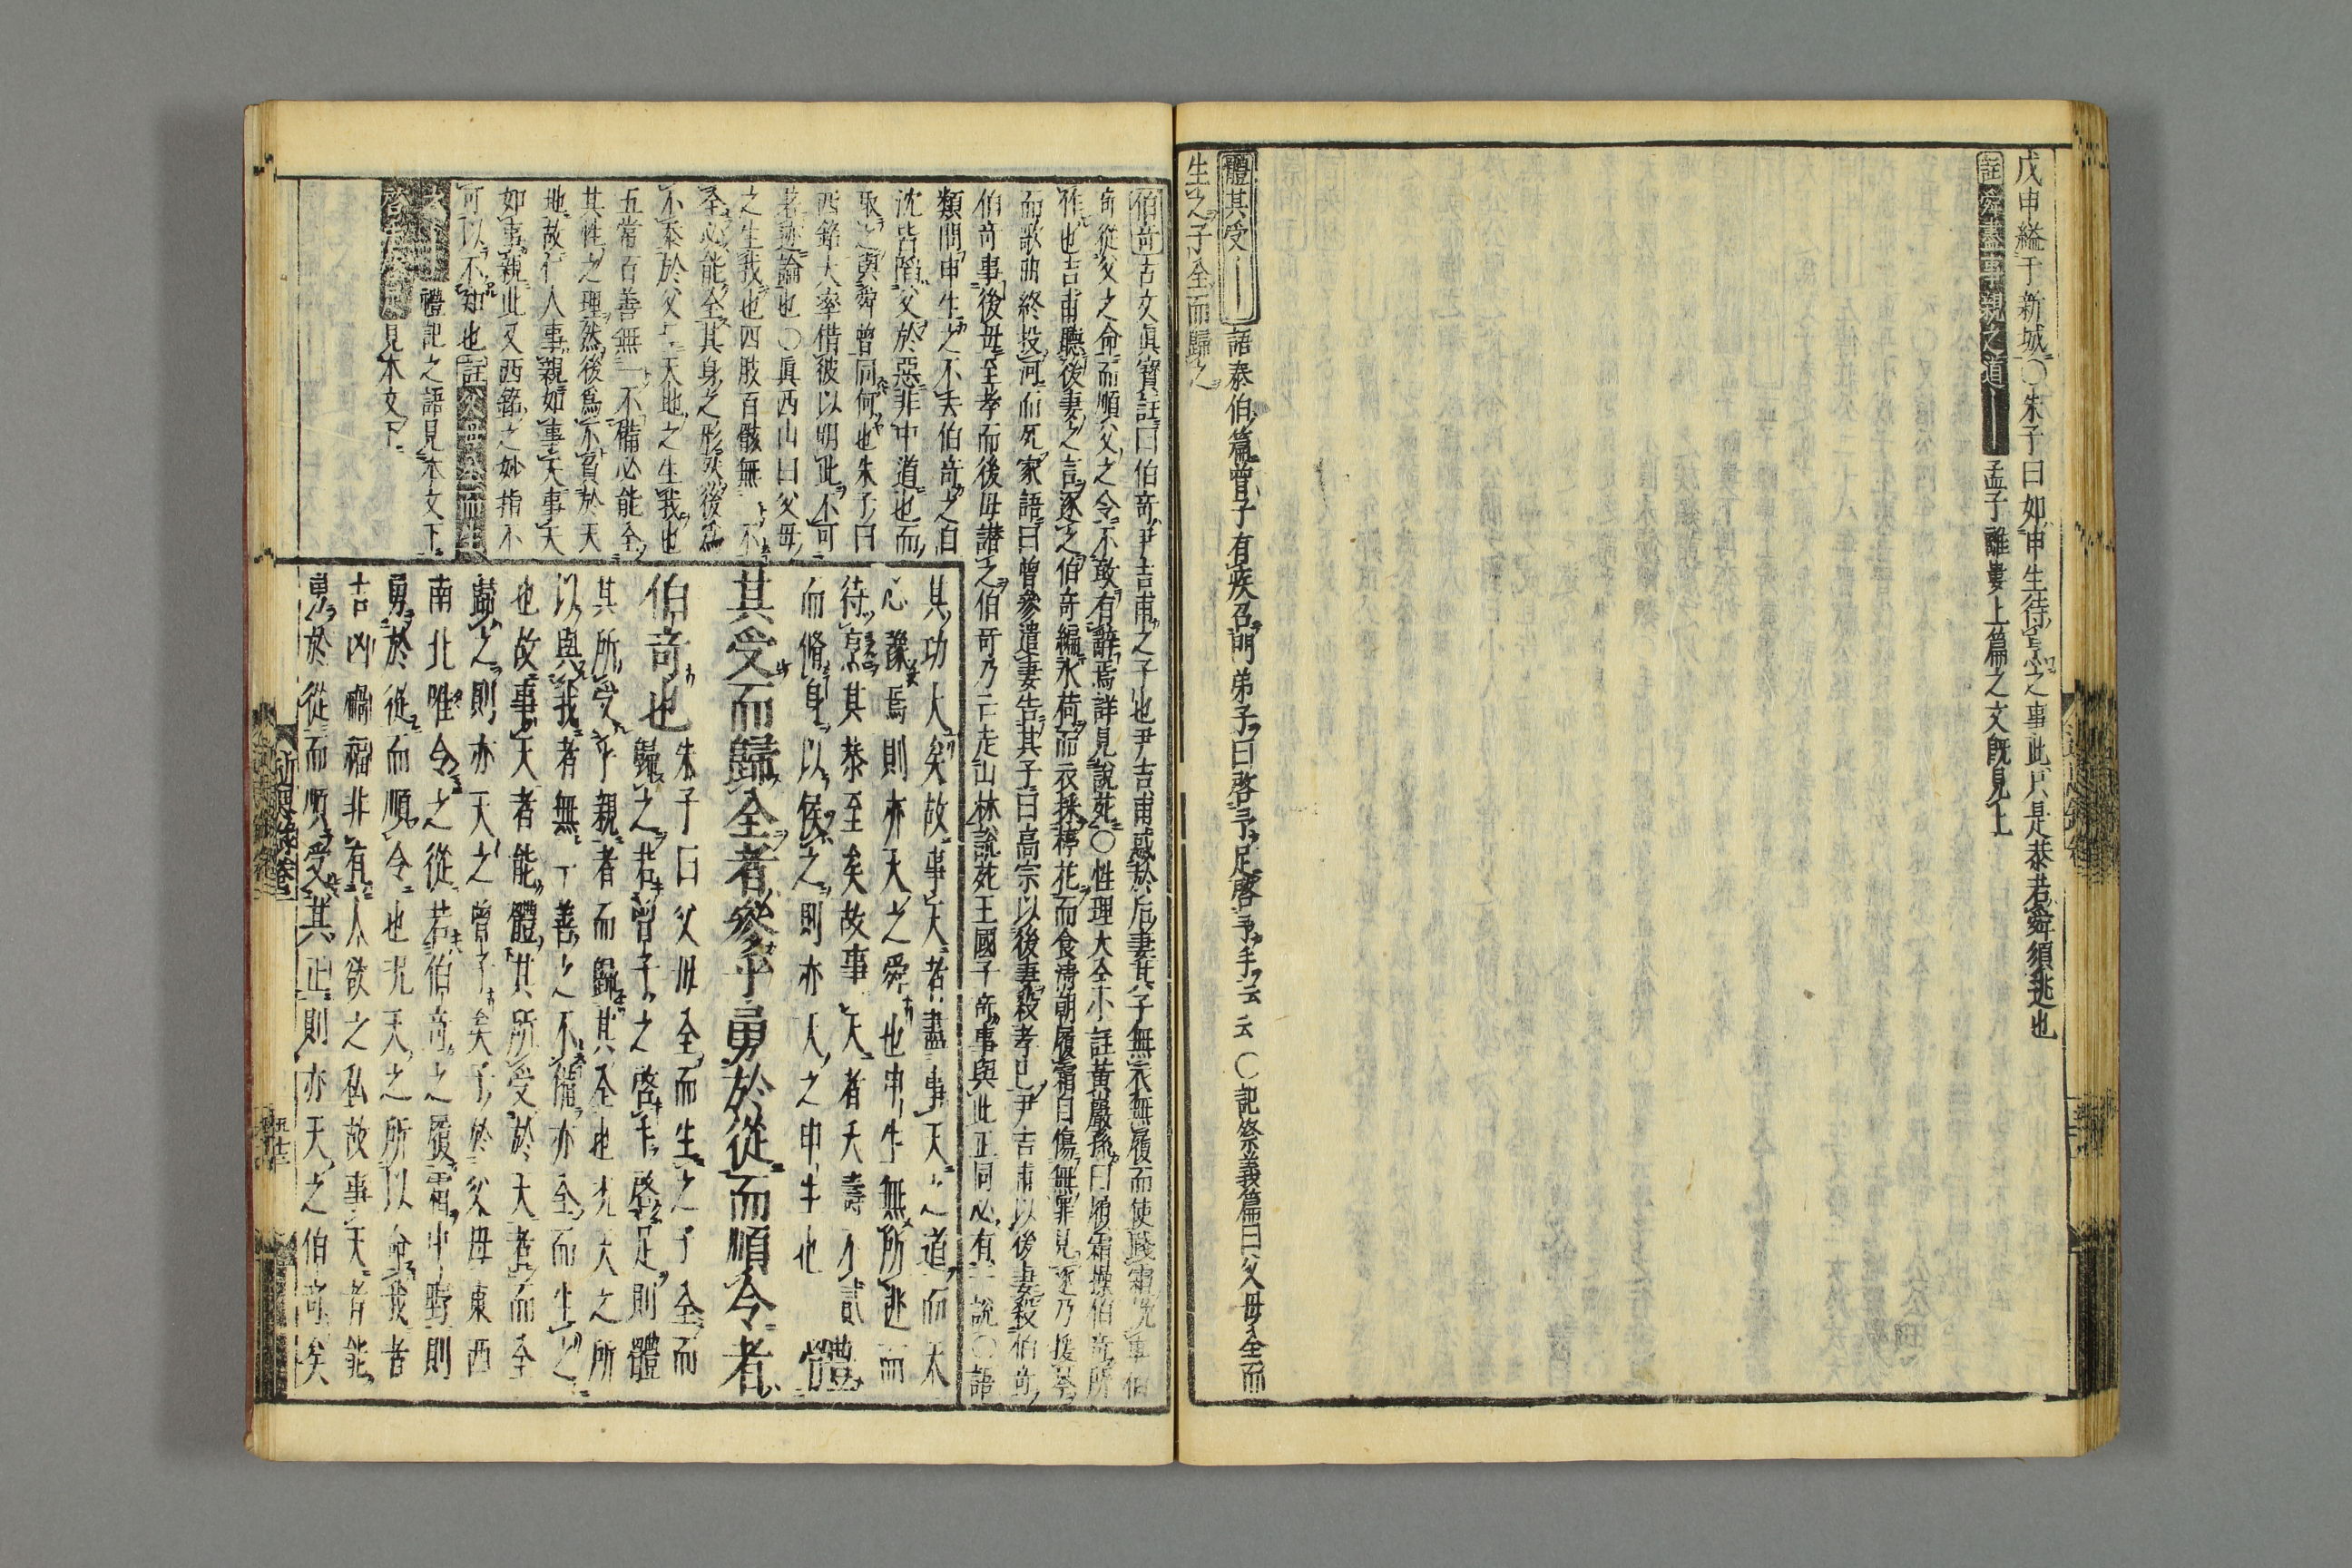 戊申縊于新城○朱子曰如申生待烹之事此只是恭若舜須逃也
註舜盡事親之道 孟子離婁上篇之文既見上
體其受 語泰伯篇曾子有疾召門弟子曰啓予足啓予手云云○記祭義篇曰父母全而
生之子全而歸之
伯奇古文眞寶註曰伯奇尹吉甫之子也尹吉甫惑於后妻其子無衣無履而使踐霜挽車伯
奇從父之命而順父之令不敢有辭焉詳見說苑○性理大全小註黃巖孫曰履霜操伯奇所
作也吉甫聽後妻之言逐之伯奇編水荷而衣採楟花而食淸朝履霜自傷無罪見逐乃援琴
而歌曲終投河而死家語曰曾參遣妻告其子曰高宗以後妻殺孝已尹吉甫以後妻殺伯奇
伯奇事後母至孝而後母譖之伯奇乃亡走山林說苑王國子奇事與此正同必有一說○語
類問申生之不去伯奇之自
沈皆陷父於惡非中道也而
取之與舜曾同何也朱子曰
西銘大率借彼以明此不可
著迹論也○眞西山曰父母
之生我也四肢百骸無 不
全必能全其身之形然後爲
不忝於父二天地之生我也
五常百善無一不備必能全
其性之理然後爲不負於天
地故仁人事親如事天事天
如事親此又西銘之妙指不
可以不知也註父母全而生
禮記之語見本文下
啓手啓足見本文下
其功大矣故事天者盡事天之道而天
心豫焉則亦天之舜也申生無所逃而
待烹其恭至矣故事天者夭壽不貳
而脩身以俟之則亦天之申生也 體
其受而歸全者參乎勇於從而順令者
伯奇也朱子曰父母全而生之子全而
歸之若曾子之啓手啓足則體
其所受乎親者而歸其全也况天之所
以與我者無一善之不備亦全而生之
也故事天者能體其所受於天者而全
歸之則亦天之曾子矣子於父母東西
南北唯令之從若伯奇之履霜中野則
勇於從而順令也况天之所以命我者
吉凶禍福非有人欲之私故事天者能
勇於從而順受其正則亦天之伯奇矣
近思錄卷二
五十三